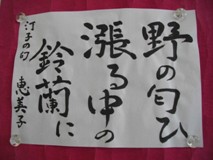 野の匂ひ
漲る中の
鈴蘭に
汀子の句
恵美子